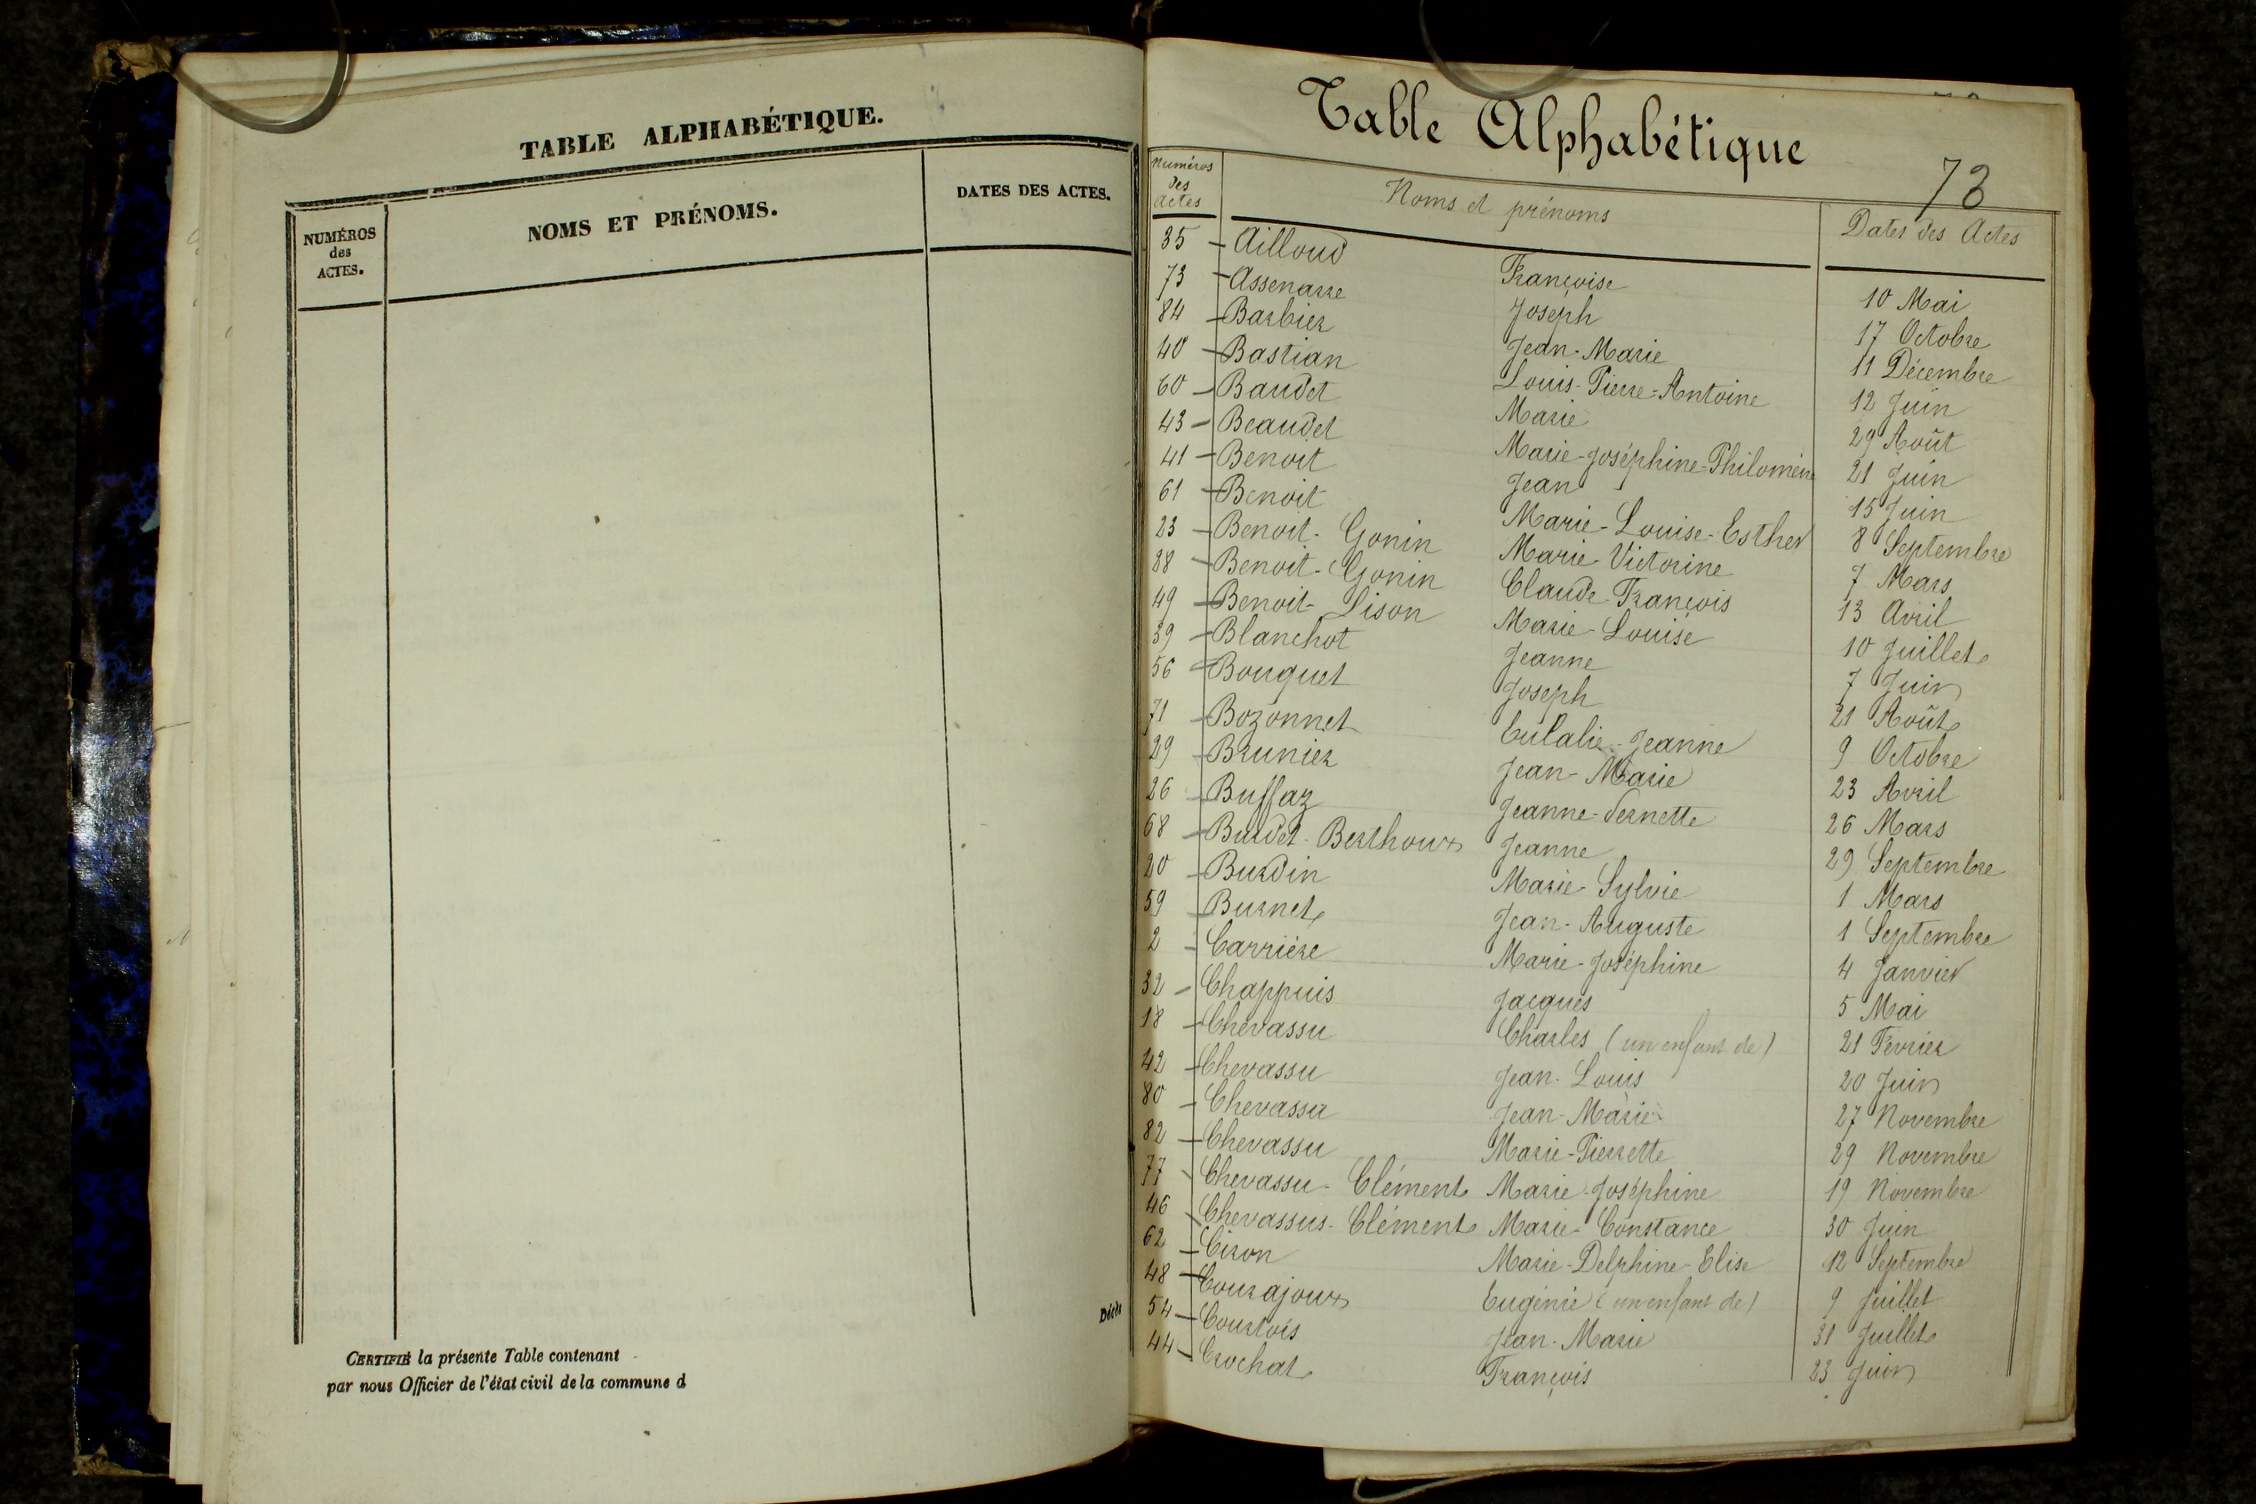 TABLE ALPHABÉTIQUE.
NUMÉROS
des
ACTES.
NOMS ET PRÉNOMS.
DATES DES ACTES.
Décès
CERTIFIÉ la présente Table contenant
par nous Officier de l'état civil de la commune d
Table Alphabétique
73
Numéros
des
Actes
Noms et prénoms
Dates des Actes
35 - Ailloud Françoise 10 Mai
73 - Assenarre Joseph 17 Octobre
84 - Barbier Jean-Marie 11 Décembre
40 - Bastian Louis-Pierre-Antoine 12 Juin
60 - Baudet Marie 29 Août
43 - Beaudet Marie-Joséphine-Philomène 21 Juin
41 - Benoit Jean 15 Juin
61 - Benoit Marie-Louise-Esther 8 Septembre
23 - Benoit-Gonin Marie Victorine 7 Mars
28 - Benoit-Gonin Claude-François 13 Avril
49 - Benoit-Lison Marie-Louise 10 Juillet
39 - Blanchot Jeanne 7 Juin
56 - Bouquet Joseph 21 Août
71 - Bozonnet Eulalie-Jeanne 9 Octobre
29 - Brunier Jean-Marie 23 Avril
26 - Buffaz Jeanne-Pernette 26 Mars
68 - Burdet-Berthoux Jeanne 29 Septembre
20 - Burdin Marie-Sylvie 1 Mars
59 - Burnet Jean-Auguste 1 Septembre
2 - Carrière Marie-Joséphine 4 Janvier
32 - Chappuis Jacques 5 Mai
18 - Chevassu Charles (un enfant de) 21 Février
42 - Chevassu Jean-Louis 20 Juin
80 - Chevassu Jean-Marie 27 Novembre
82 - Chevassu Marie-Pierrette 29 Novembre
77 - Chevassu-Clément Marie-Joséphine 19 Novembre
46 - Chevassus-Clément Marie-Constance 30 Juin
62 - Ciron Marie-Delphine-Elise 12 Septembre
48 - Courajoux Eugénie (un enfant de) 9 Juillet
54 - Courtois Jean-Marie 31 Juillet
44 - Crochat François 23 Juin